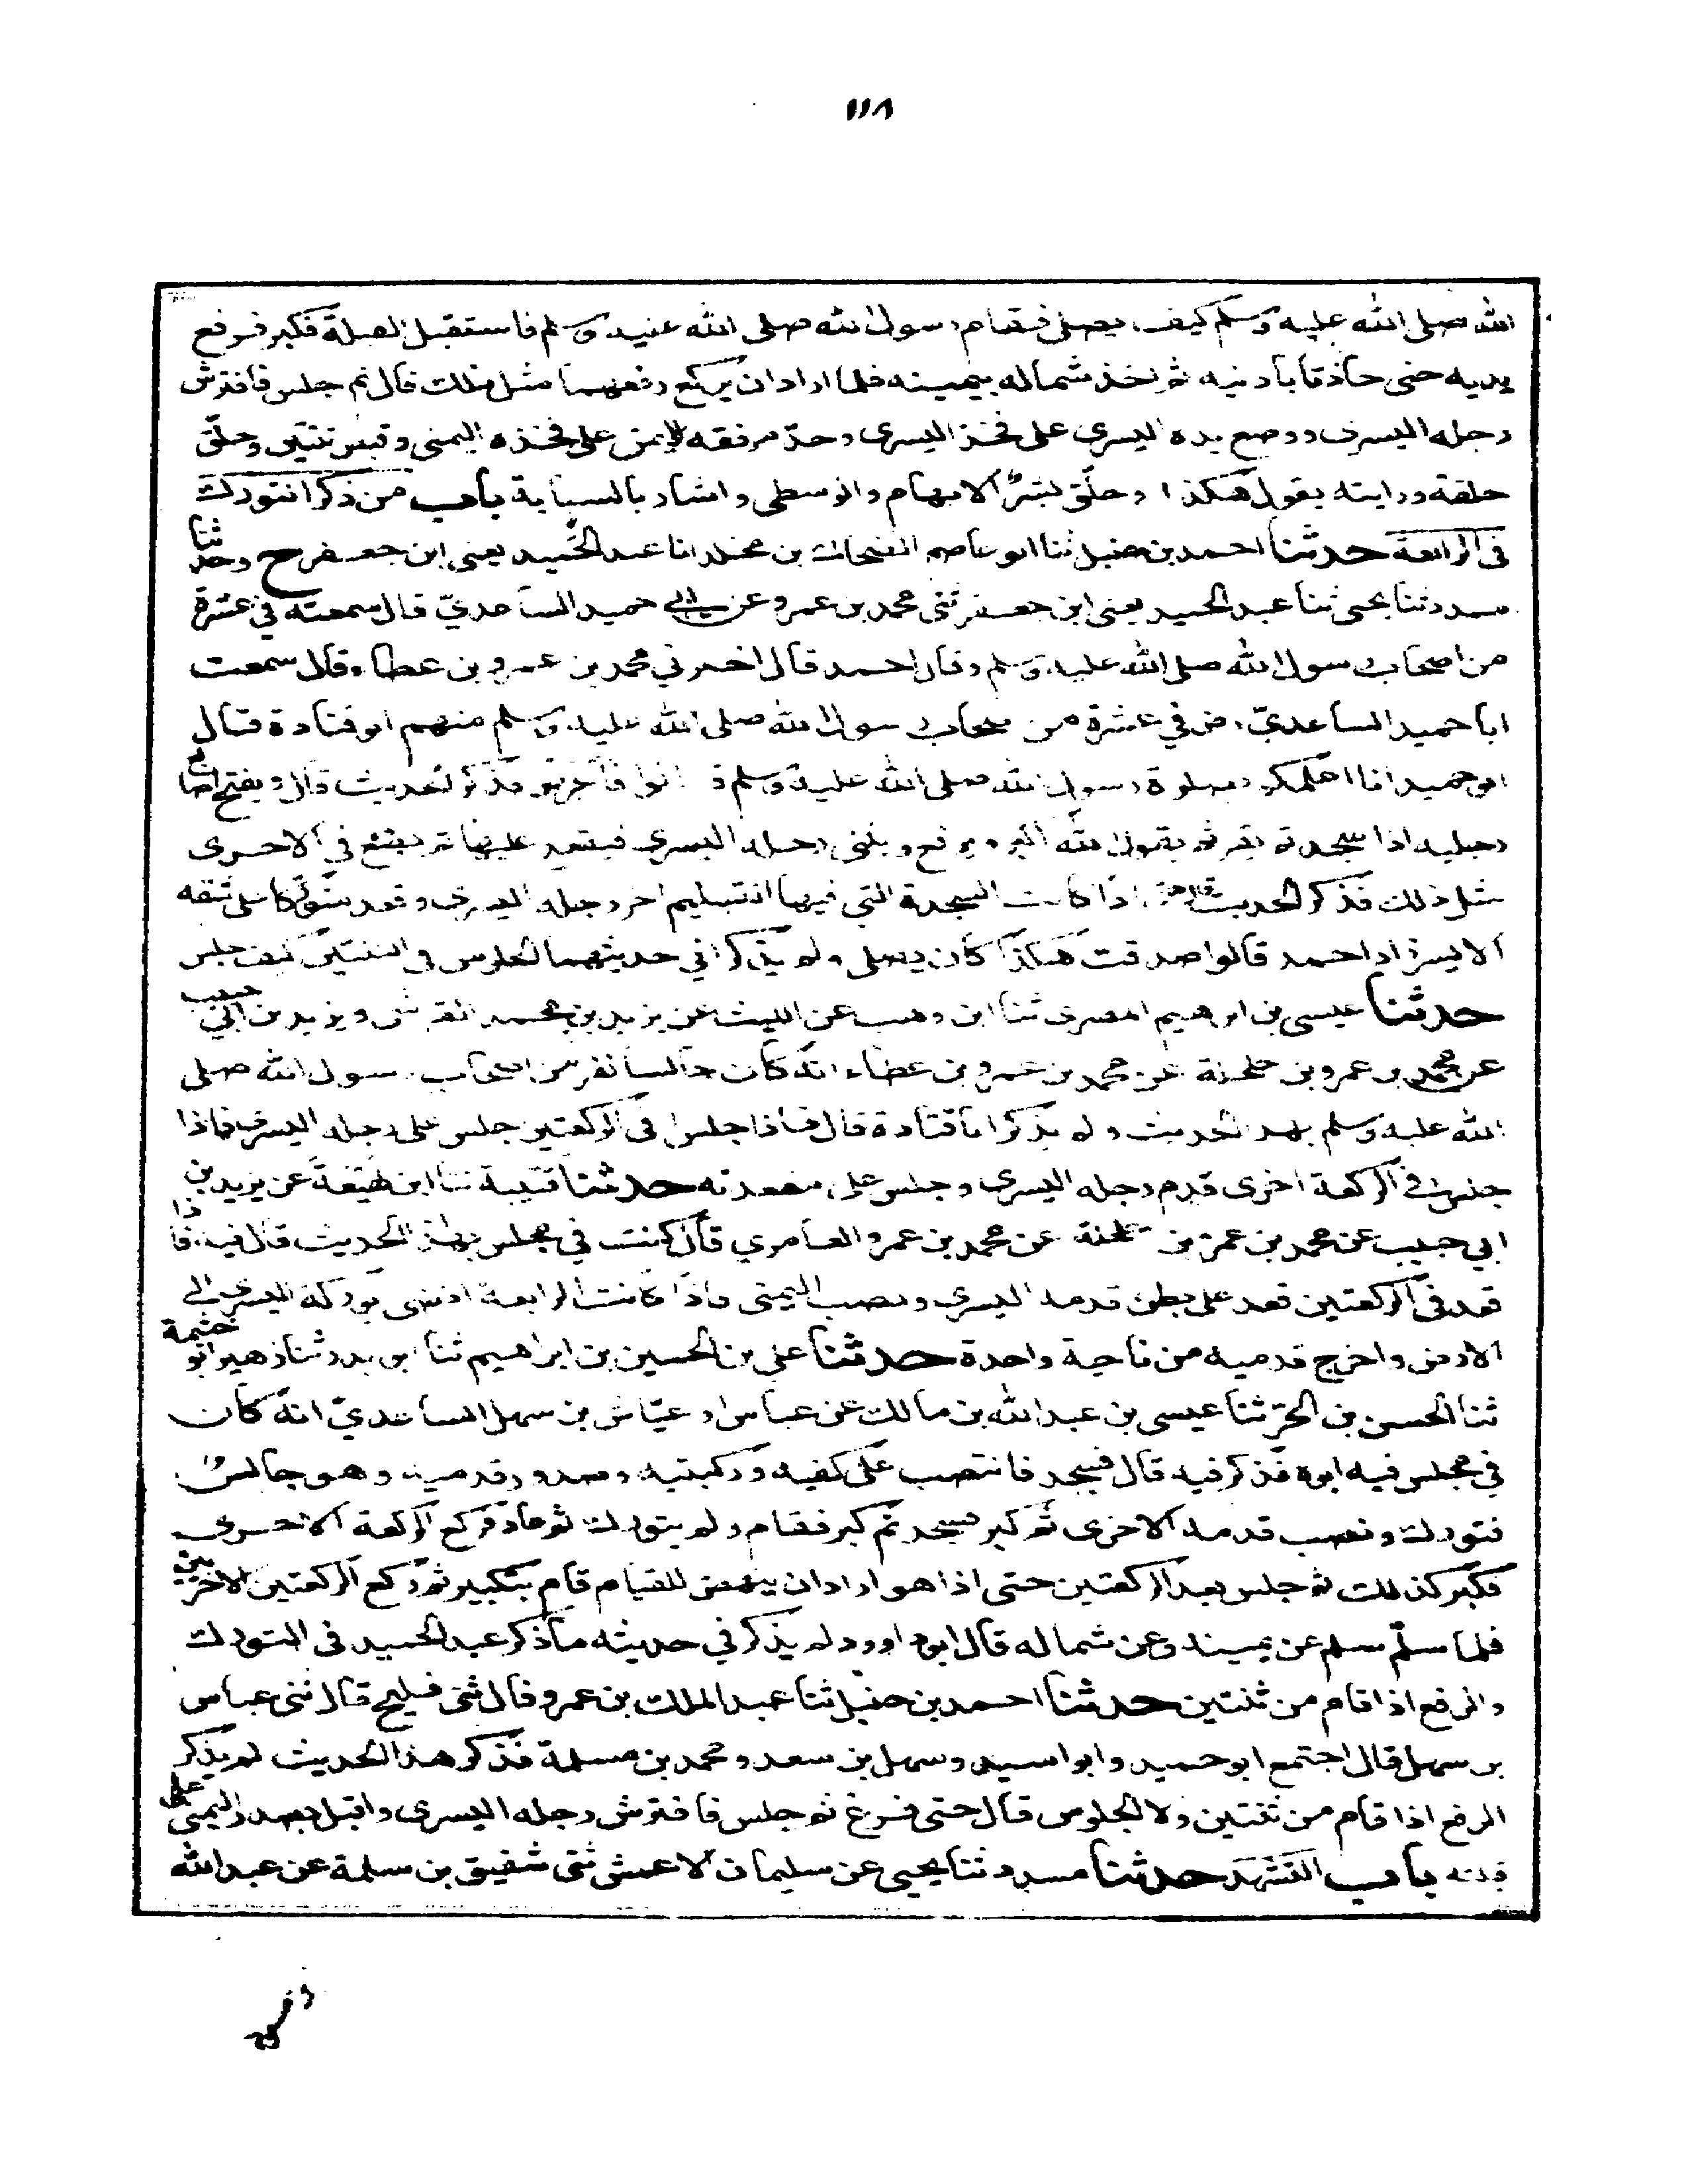 ١١٨
الله صلى الله عليه وسلم كيف يصلى فقام رسول الله صلى الله عليه وسلم فاستقبل القبلة فكبر فرفع
يديه حتى حاذتا باذنيه ثم اخذ شماله بيمينه فلما اراد ان يركع رفعهما مثل ذلك قال ثم جلس فافترش
رجله اليسرى ووضع يده اليسرى على فخذه اليسرى وحدّ مرفقه الايمن على فخذه اليمنى وقبض ثنتين وحلّق
حلقة ورايته يقول هكذا وحلّق بشرٌ الابهام والوسطى واشار بالسبابة باب من ذكر التورك
فى الرابعة حدثنا احمد بن حنبل ثنا ابو عاصم الضحاك بن مخلد انا عبد الحميد يعنى ابن جعفر ح وحدثنا
مسدد ثنا يحيى ثنا عبد الحميد يعنى ابن جعفر ثنى محمد بن عمرو عن ابي حميد الساعديّ قال سمعته في عشرة
من اصحاب رسول الله صلى الله عليه وسلم وقال احمد قال اخبرني محمد بن عمرو بن عطاء قال سمعت
ابا حميد الساعديّ رض في عشرة من اصحاب رسول الله صلى الله عليه وسلم منهم ابو قتادة قال
ابو حميد انا اعلمكم بصلوة رسول الله صلى الله عليه وسلم قالوا فاعرض فذكر الحديث قال ويفتح اصابع
رجليه اذا سجد ثم يقول الله اكبر ويرفع ويثنى رجله اليسرى فيقعد عليها ثم يصنع في الاخرى
مثل ذلك فذكر الحديث قال حتى اذا كانت السجدة التي فيها التسليم اخر رجله اليسرى وقعد متوركا على شقه
الايسر زاد احمد قالوا صدقت هكذا كان يصلى ولم يذكرا في حديثهما الجلوس فى الثنتين كيف جلس
حدثنا عيسى بن ابرهيم المصرى ثنا ابن وهب عن الليث عن يزيد بن محمد القرشى ويزيد بن ابي حبيب
عن محمد بن عمرو بن حلحلة عن محمد بن عمرو بن عطاء انه كان جالسا نفر من اصحاب رسول الله صلى
الله عليه وسلم بهذا الحديث ولم يذكر ابا قتادة قال فاذا جلس فى الركعتين جلس على رجله اليسرى فاذا
جلس فى الركعة اخرى قدم رجله اليسرى وجلس على مقعدته حدثنا قتيبة ثنا ابن لهيعة عن يزيد بن
ابي حبيب عن محمد بن عمرو بن حلحلة عن محمد بن عمرو العامري قال كنت في مجلس بهذا الحديث قال فيه فاذا
قعد فى الركعتين قعد على بطن قدمه اليسرى ونصب اليمنى فاذا كانت الرابعة افضى بوركه اليسرى الى
الارض واخرج قدميه من ناحية واحدة حدثنا على بن الحسين بن ابراهيم ثنا ابو بدر ثنا زهير ابو خثيمة
ثنا الحسن بن الحرّ ثنا عيسى بن عبد الله بن مالك عن عباس او عيّاش بن سهل الساعديّ انه كان
في مجلس فيه ابوه فذكر فيه قال فسجد فانتصب على كفيه وركبتيه وصدور قدميه وهو جالس
فتورك ونصب قدمه الاخرى ثم كبر فسجد ثم كبر فقام ولم يتورك ثم عاد فركع الركعة الاخرى
فكبّر كذلك ثم جلس بعد الركعتين حتى اذا هو اراد ان ينهض للقيام قام بتكبير ثم ركع الركعتين الاخريين
فلما سلّم سلم عن يمينه وعن شماله قال ابو داوود لم يذكر في حديثه ما ذكر عبد الحميد فى التورك
والرفع اذا قام من ثنتين حدثنا احمد بن حنبل ثنا عبد الملك بن عمرو قال ثنى فليح قال ثنى عباس
بن سهل قال اجتمع ابو حميد وابو اسيد وسهل بن سعد ومحمد بن مسلمة فذكر هذا الحديث لم يذكر
الرفع اذا قام من ثنتين ولا الجلوس قال حتى فرغ ثم جلس فافترش رجله اليسرى واقبل بصدر اليمنى على
قبلته باب التشهد حدثنا مسدد ثنا يحيى عن سليمان الاعمش ثنى شقيق بن سلمة عن عبد الله